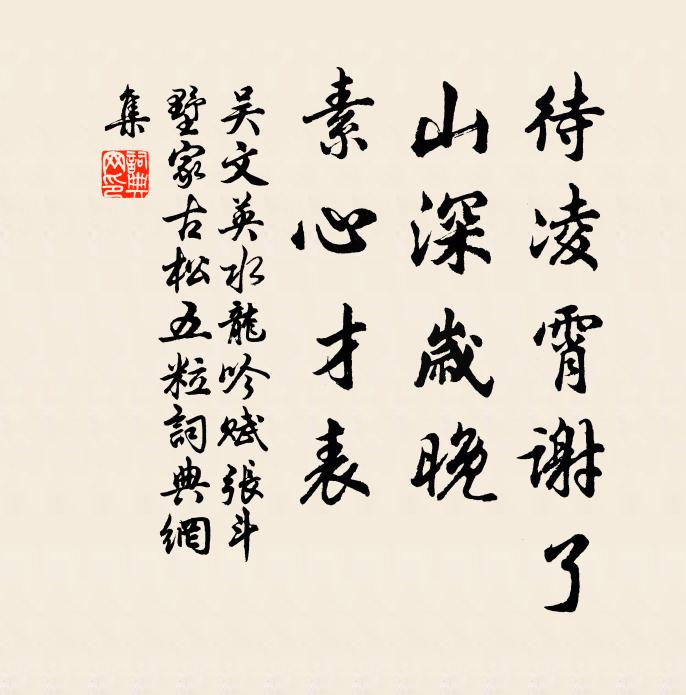 待凌霄謝了
山深歲晚
素心才表
吴文英水龍吟赋張斗
墅家古松五粒詞典網
集
詞典
网印